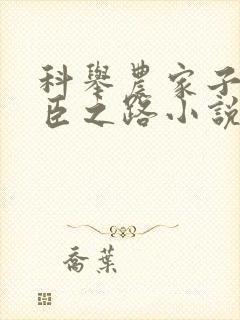 科舉農家子
臣之路小說
喬葉